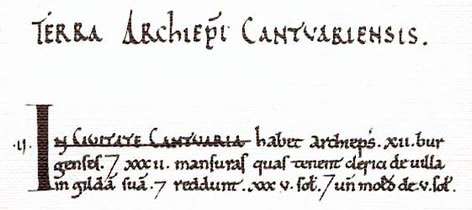 TERRA ARCHIEP̄I CANTVARIENSIS.
.ij. IN CIVITATE CANTVARIA habet archieps̄. XII. bur
genses. ⁊ XXXII. mansuras quas tenent clerici de uilla
in gildā suā. ⁊ reddunt. XXXV. sol̄. ⁊ un̄ mold̄ de. V. sol̄.